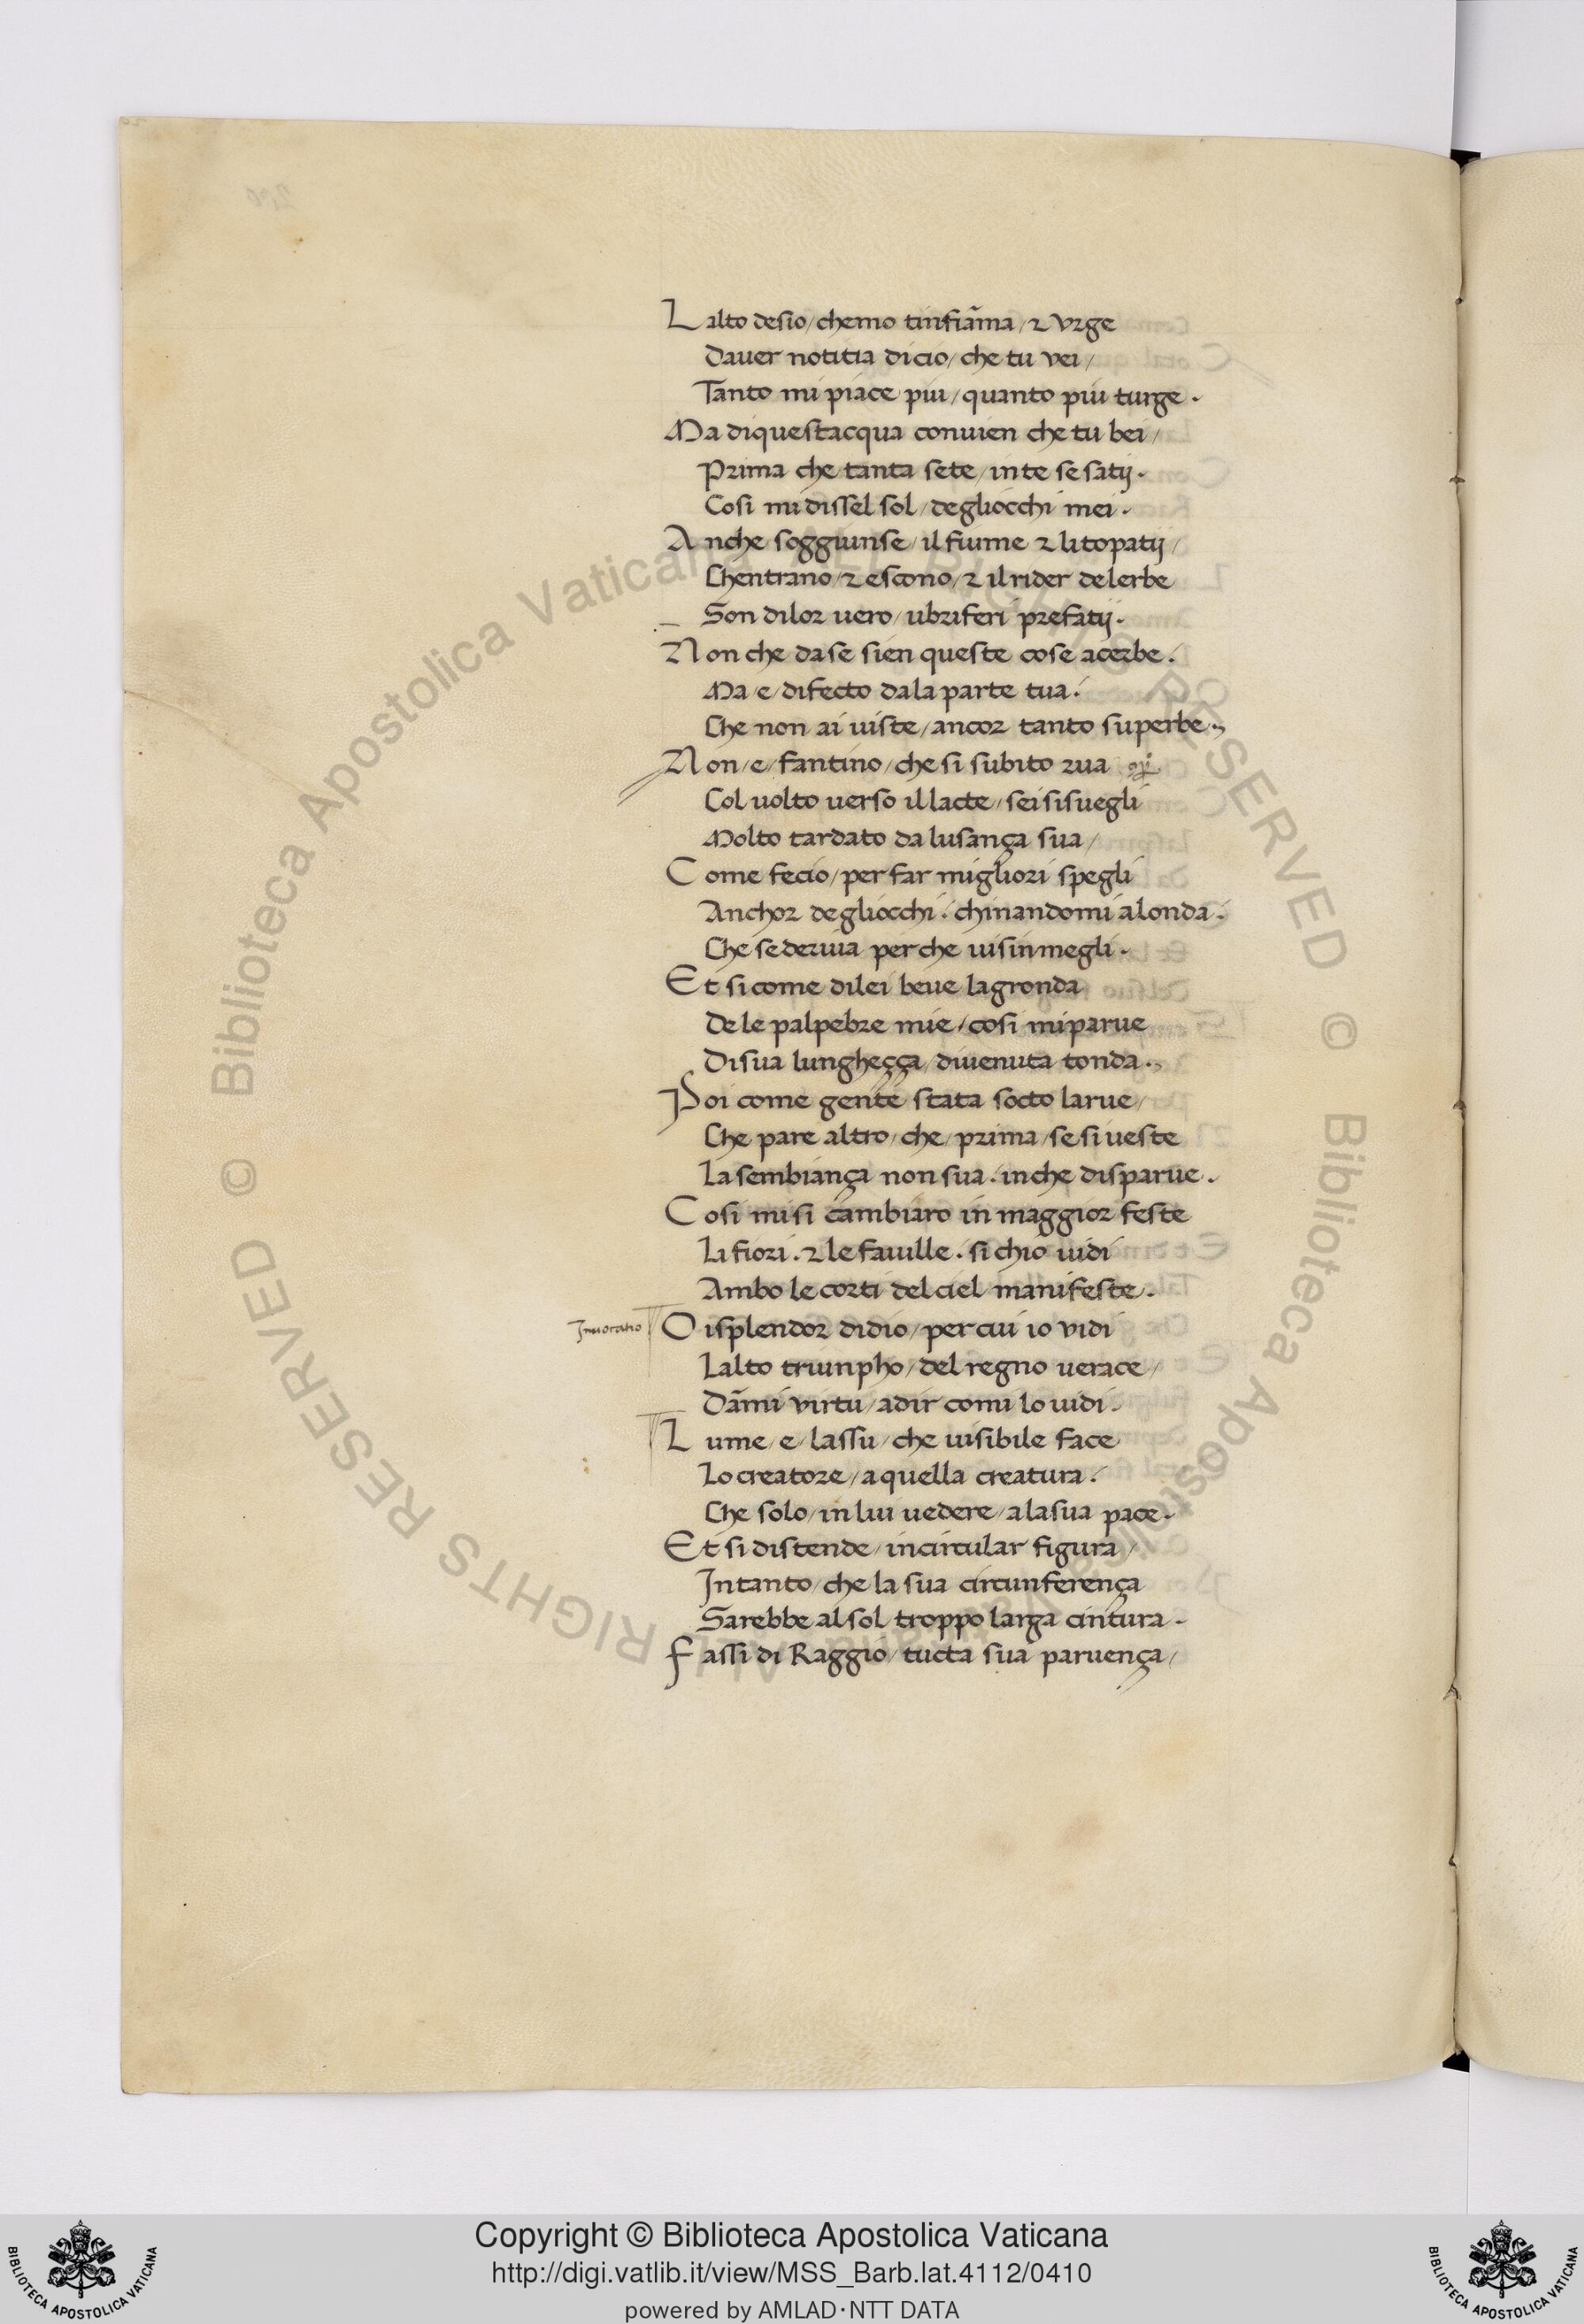 Lalto desio / chemo tinfiāma / ⁊ vrge
Daver notitia dicio / che tu vei /
Tanto mi piace piu / quanto piu turge .
Ma diquestacqua convien che tu bei /
Prima che tanta sete / in te se satij .
Cosi mi dissel sol / degliocchi mei .
Anche soggiunse / il fiume ⁊ li topatij /
Chentrano / ⁊ escono / ⁊ il rider delerbe
Son dilor vero / vbriferi prefatij .
Non che dase sien queste cose acerbe .
Ma e / difecto dala parte tua .
Che non ai viste / ancor tanto superbe .
Non / e / fantino / che si subito rua
Col volto verso il lacte / sei si suegli
Molto tardato da lusança sua /
Come fecio / per far migliori spegli
Anchor degliocchi . chinandomi alonda .
Che se deriua perche uisinmegli .
Et si come dilei beue lagronda
De le palpebre mie / cosi miparue
Disua lungheçça / diuenuta tonda .
Poi come gente stata socto larue /
Che pare altro / che / prima / se si ueste
La sembiança non sua . inche disparue .
Cosi misi cambiaro in maggior feste
Li fiori . ⁊ le fauille . si chio uidi
Ambo le corti del ciel manifeste .
Inuocatio
O isplendor didio / per cui io vidi
Lalto triunpho / del regno uerace /
Dāmi virtu / adir comi lo uidi .
Lume / e / lassu / che uisibile face
Lo creatore / aquella creatura .
Che solo / in lui uedere / ala sua pace .
Et si distende / incircular figura /
Intanto / che la sua circunferença
Sarebbe al sol troppo larga cintura .
Fassi di Raggio / tucta sua paruença /
© Biblioteca Apostolica Vaticana ALL RIGHTS RESERVED © Biblioteca Apostolica Vaticana ALL RIGHTS RESERVED
Copyright © Biblioteca Apostolica Vaticana
http://digi.vatlib.it/view/MSS_Barb.lat.4112/0410
powered by AMLAD·NTT DATA
BIBLIOTECA APOSTOLICA VATICANA
BIBLIOTECA APOSTOLICA VATICANA